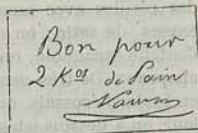 Bon pour
2 Kos de Pain